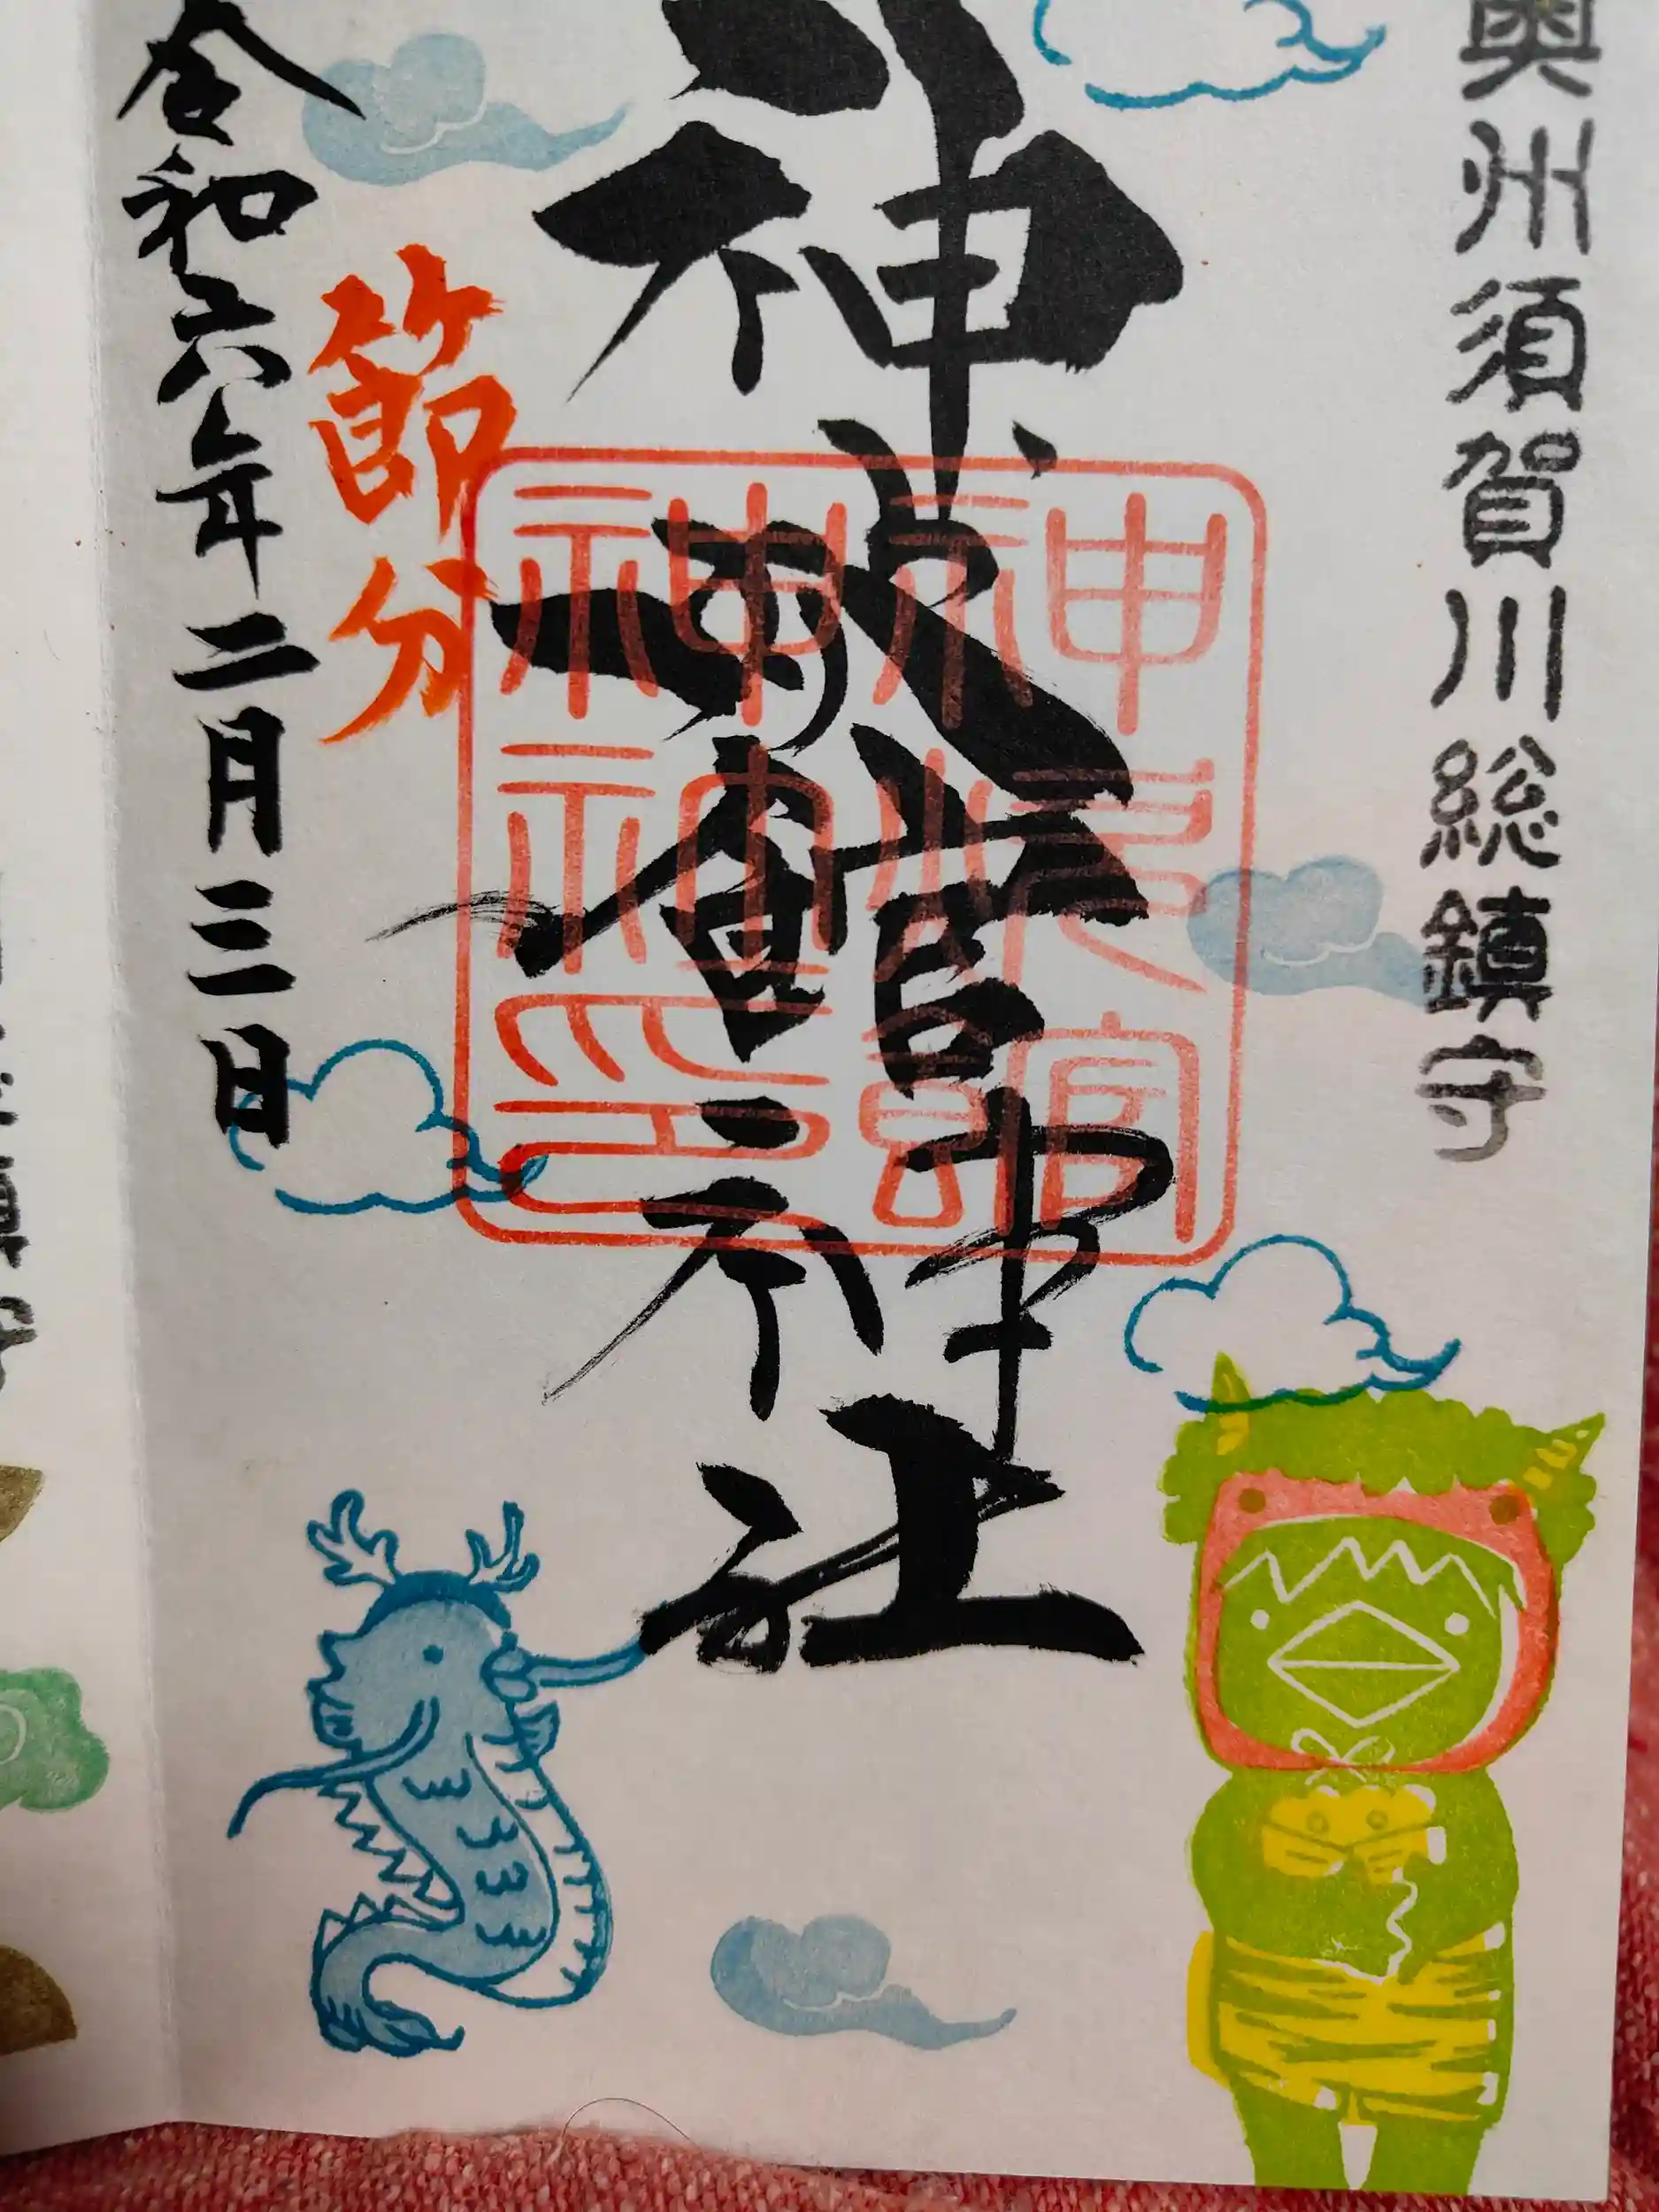 奥州須賀川総鎮守
神炊館神社
節分
令和六年二月三日